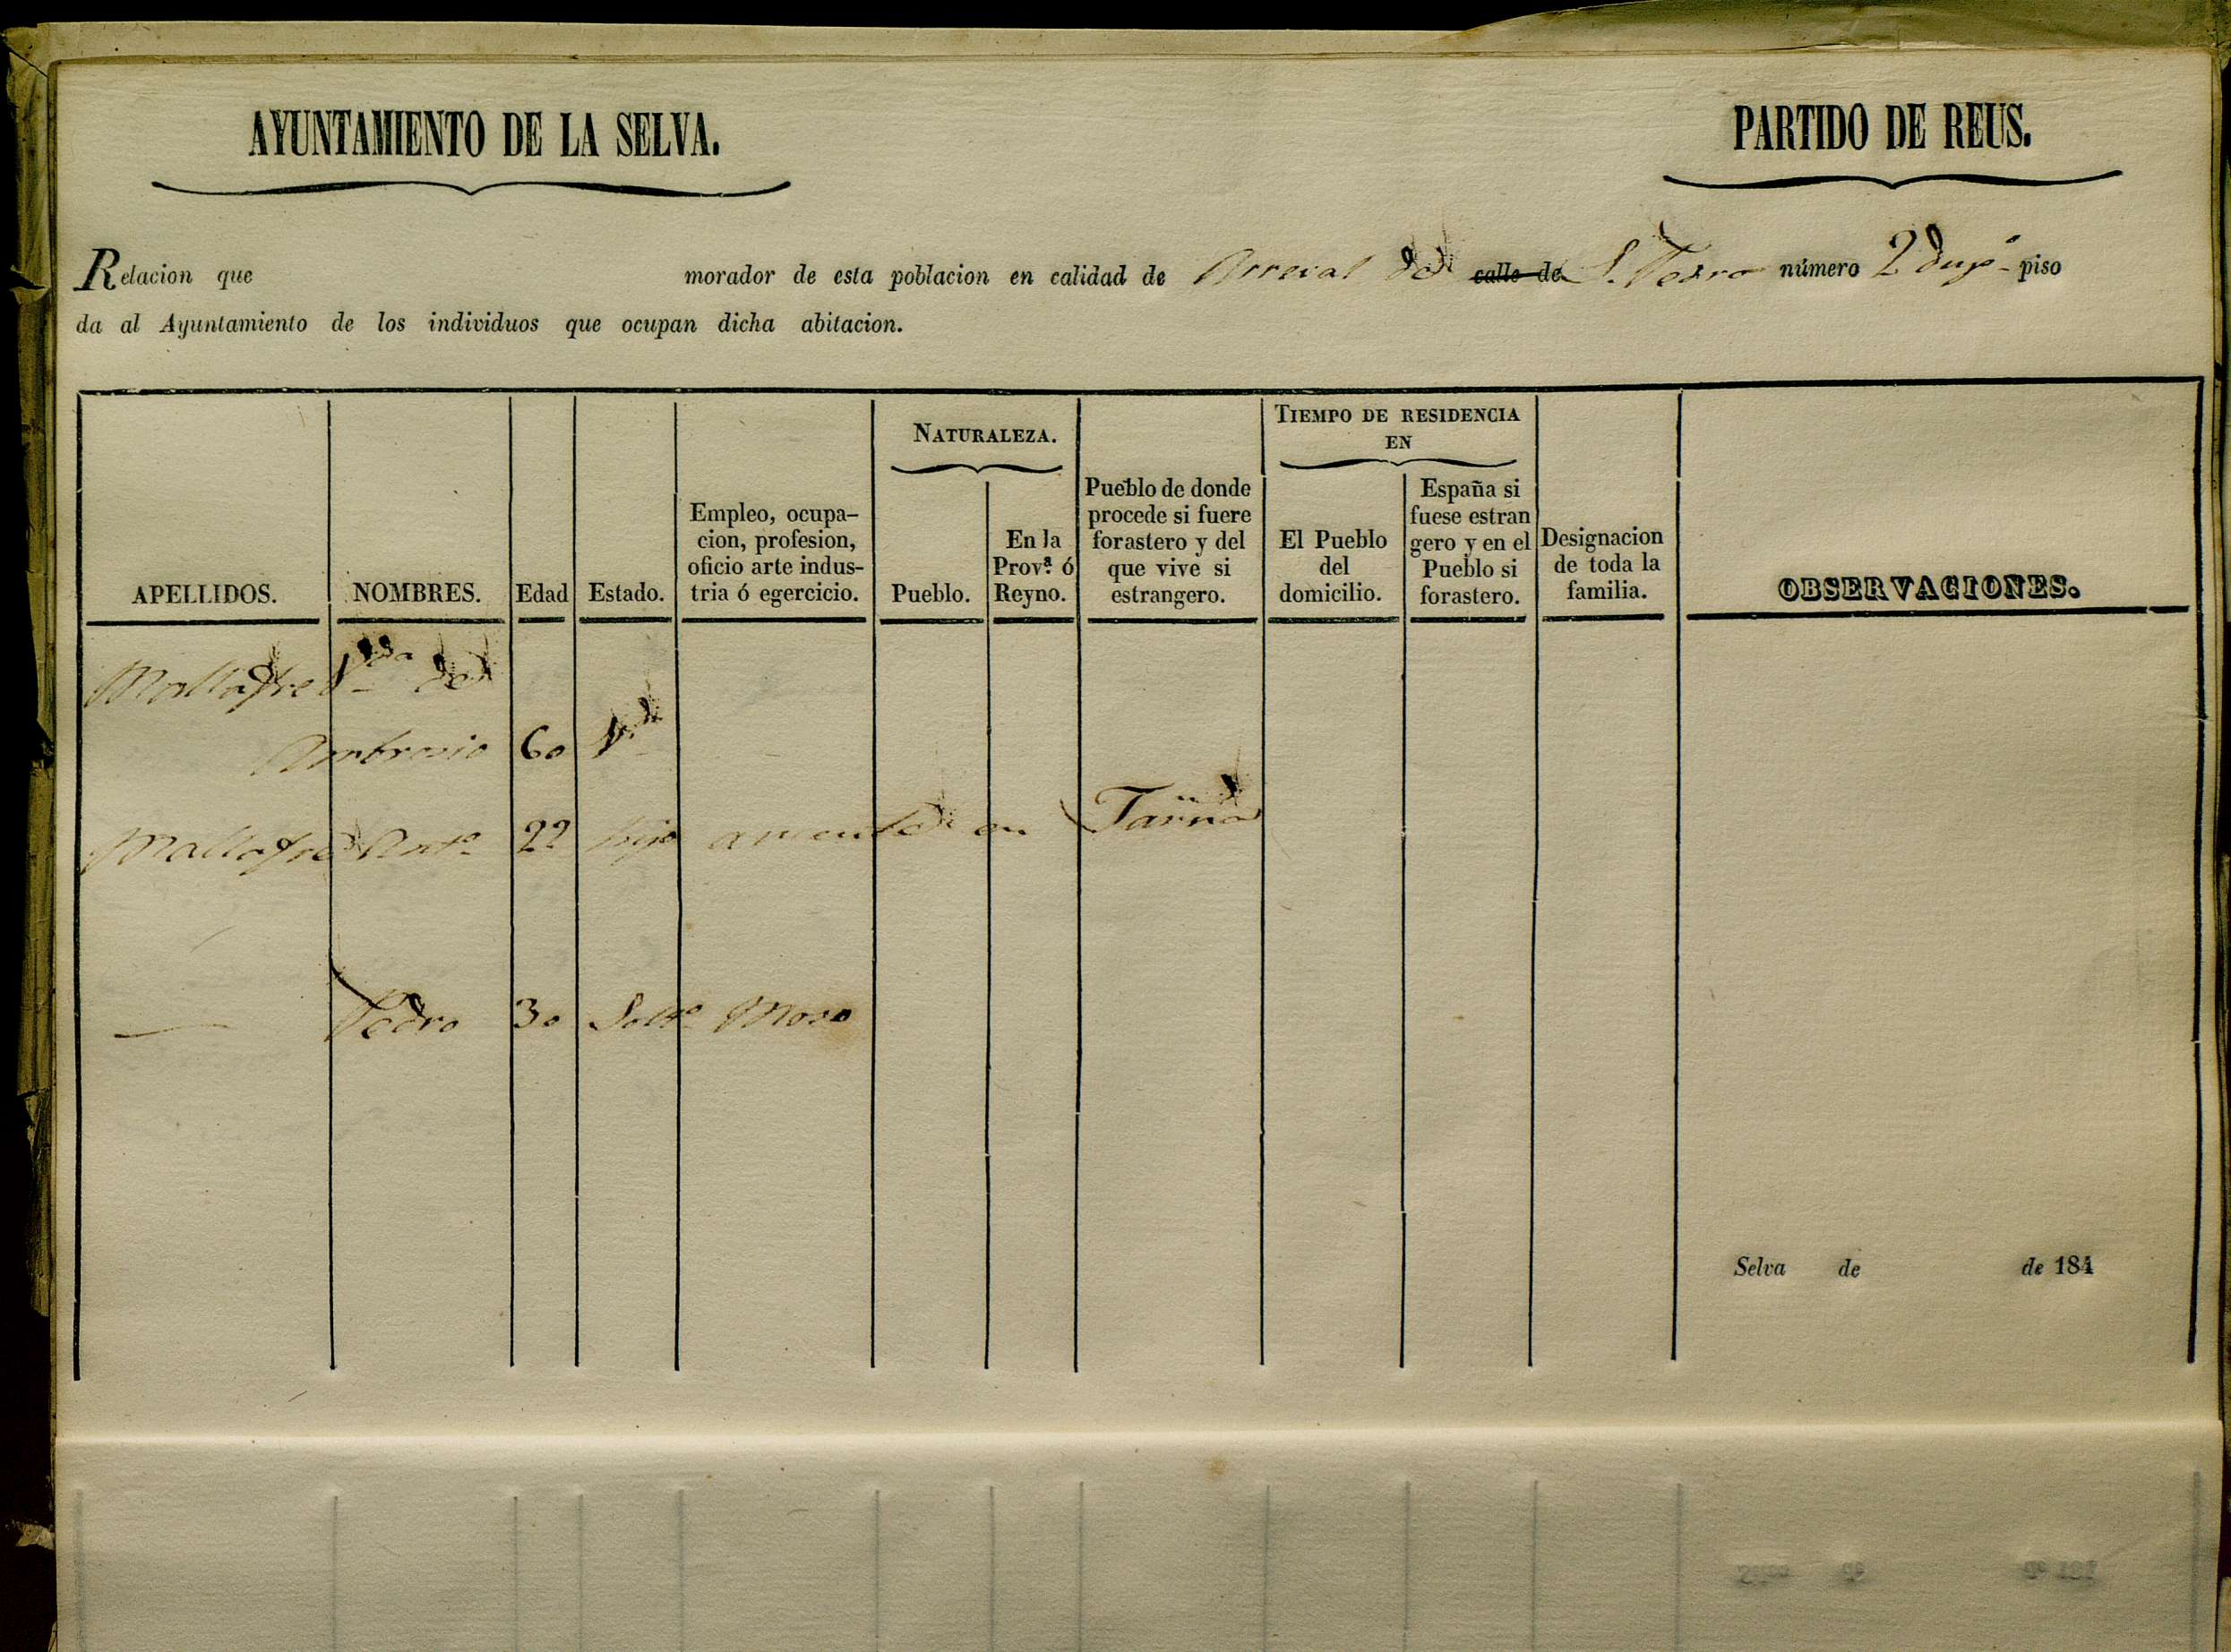 AYUNTAMIENTO DE LA SELVA.
PARTIDO DE REUS.
Relacion que morador de esta poblacion en calidad de Arreval de calle de S. Pedro número 2 dupº piso
da al Ayuntamiento de los individuos que ocupan dicha abitacion.
APELLIDOS.
NOMBRES.
Edad
Estado.
Empleo, ocupa-
cion, profesion,
oficio arte indus-
tria ó egercicio.
NATURALEZA.
Pueblo.
En la
Prov.ª ó
Reyno.
Pueblo de donde
procede si fuere
forastero y del
que vive si
estrangero.
TIEMPO DE RESIDENCIA
EN
El Pueblo
del
domicilio.
España si
fuese estran
gero y en el
Pueblo si
forastero.
Designacion
de toda la
familia.
OBSERVACIONES.
Mallafre Vda de
Ambrosio 60 Vda
Mallafre Antº 22 hijo ausente en
— Pedro 30 Soltº Moso
Selva de de 184